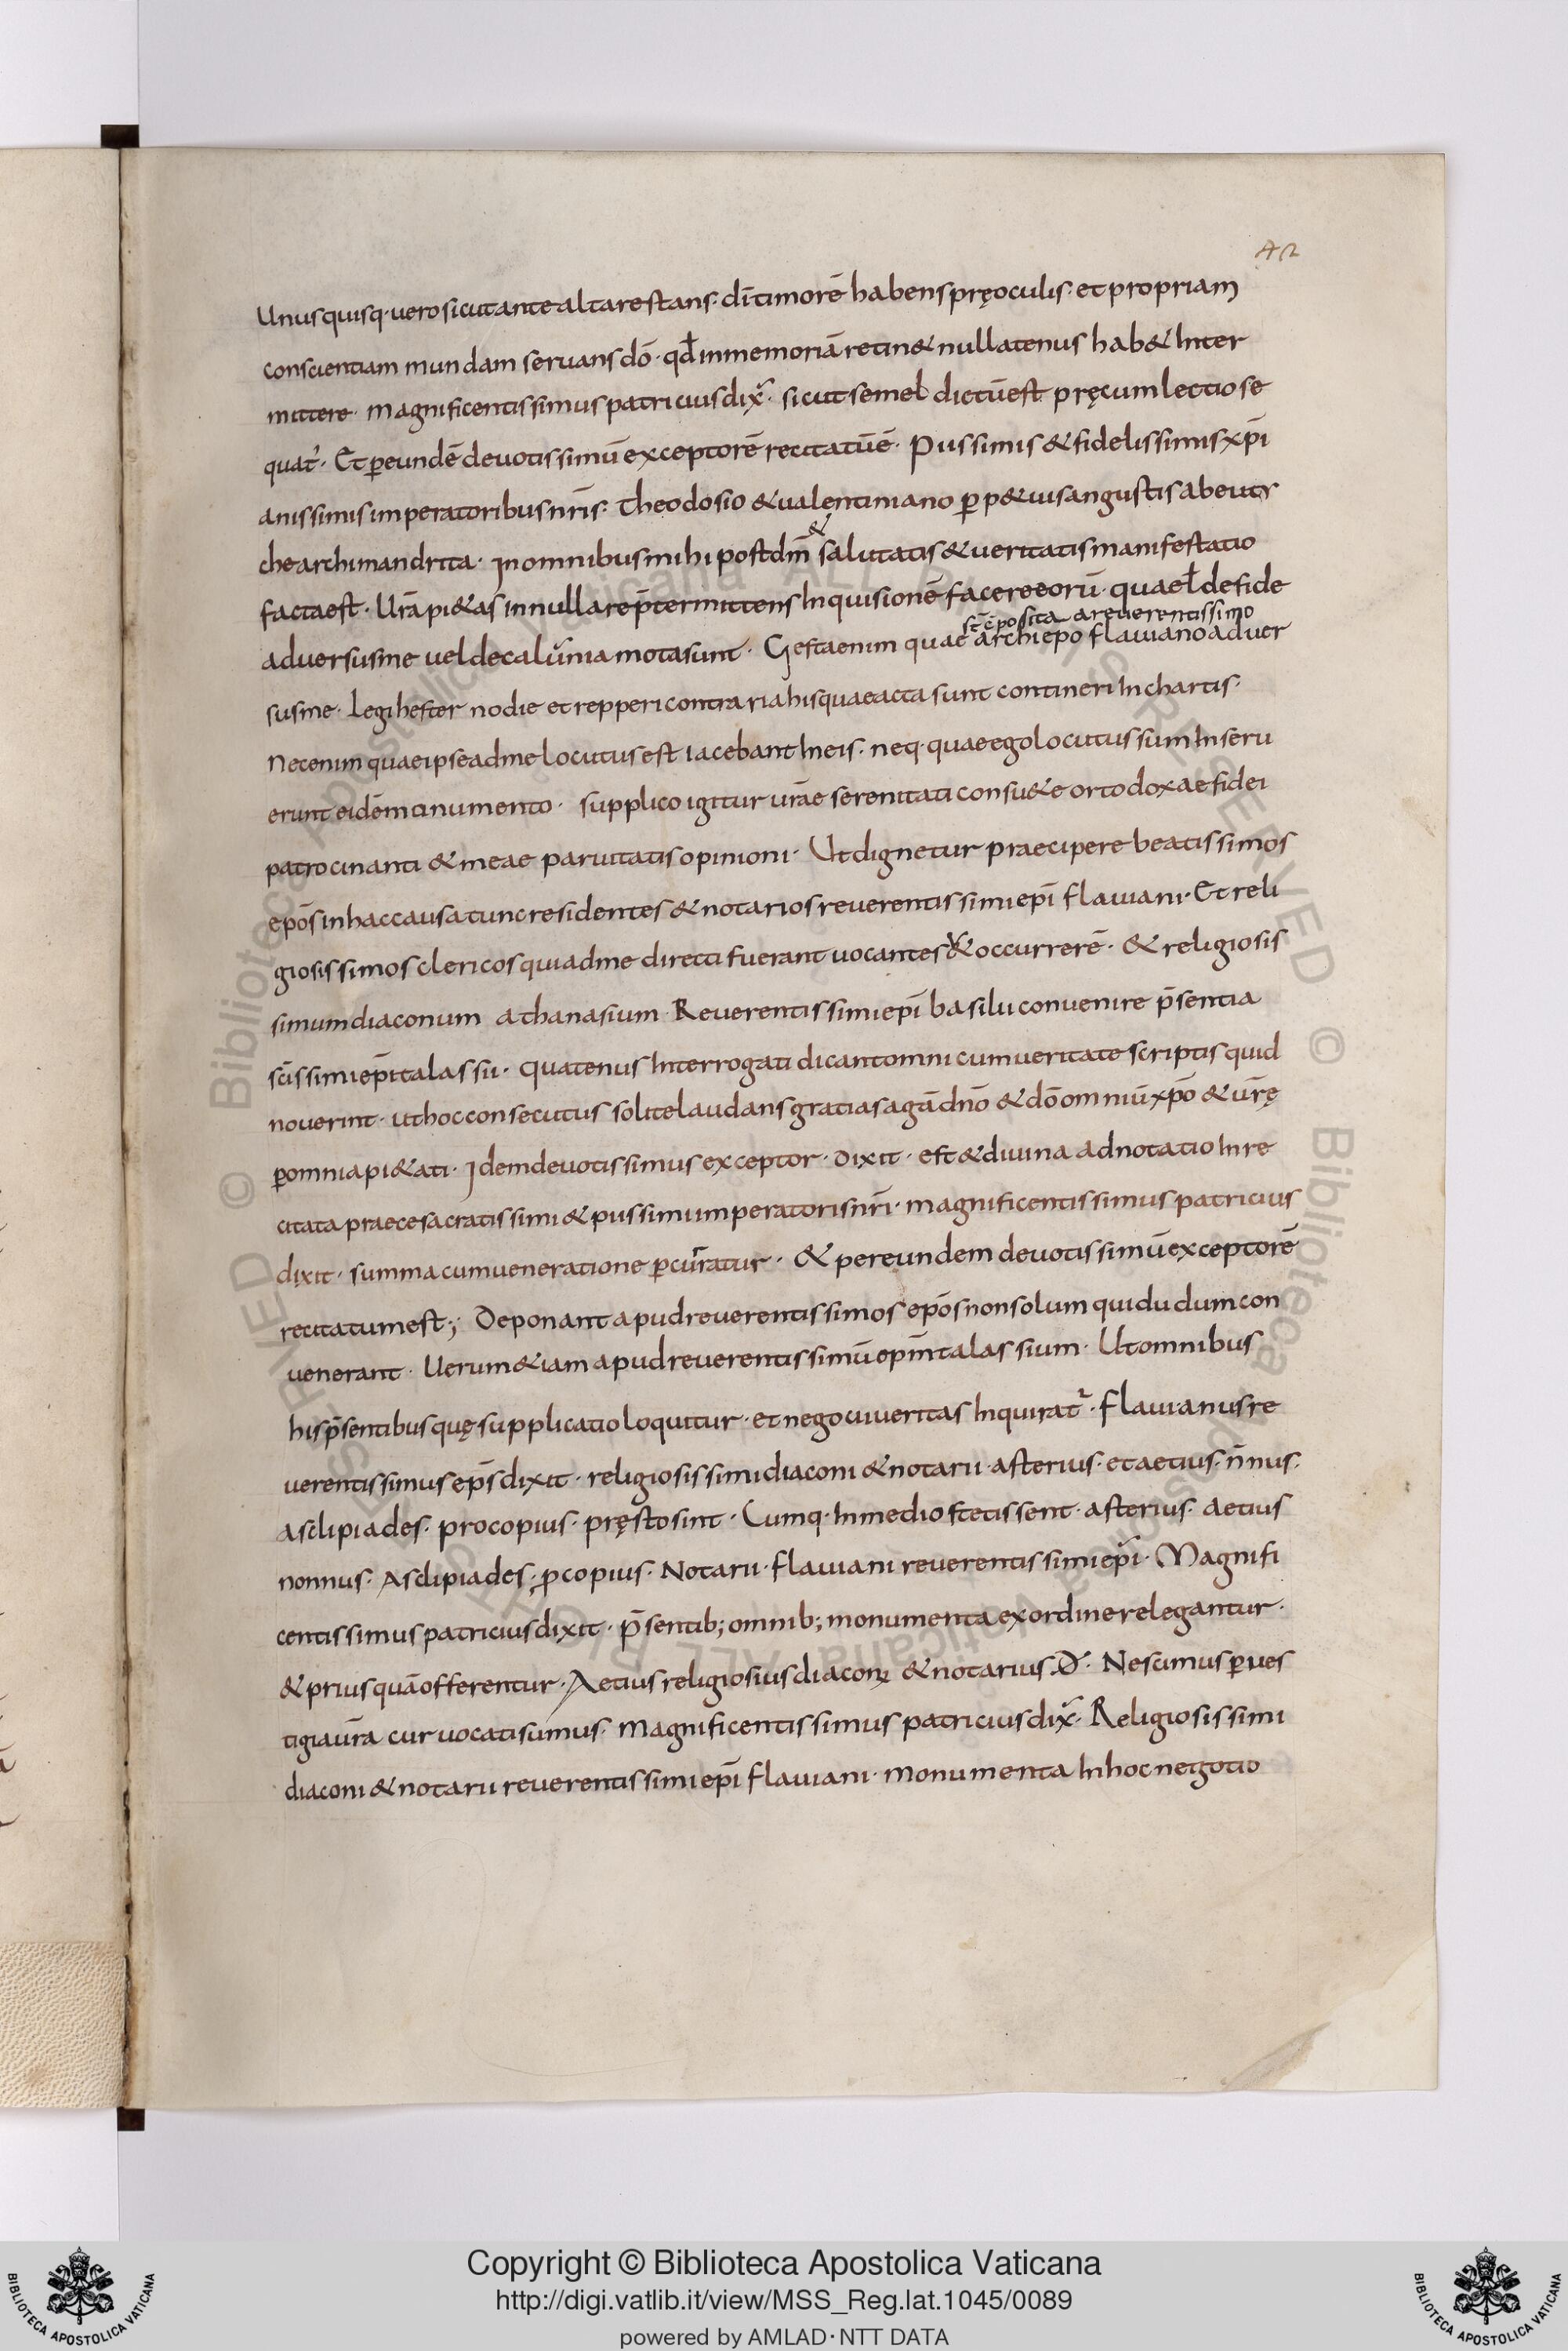 42
Unusquisq· uero sicut ante altare stans· dī timorē habens pręoculis· et propriam
conscientiam mundam seruans dō· qđ inmemoriā retin& nullatenus hab& Inter
mittere· magnificentissimus patricius dix̄· sicut semel dictū est pręcum lectio se
quat᷑· Et p̲ eundē deuotissimū exceptorē recitatū ē· Piissimis & fidelissimis xp̄i
anissimis imperatoribus nr̄is· Theodosio & ualentiniano p̲p&uis angustis ab euty
che archimandrita· In omnibus mihi post dm̄ & salutatis & ueritatis manifestatio
facta est· Ur̄a pi&as in nulla re p̄termittens Inquisionē facere eorū· quae ł de fide
aduersus me uel de calūnia mota sunt· Gesta enim quae sc̄ ēposita a reuerentissimo archiepo flauiano aduer
sus me· legi hester nodie et repperi contraria his quae acta sunt contineri In chartis·
Nec enim quae ipse ad me locutus est iacebant In eis· neq· quae ego locutus sum Inseru
erunt eidēm cinumento· supplico igitur ur̄ae serenitati consu&e ortodoxae fidei
patrocinanti & meae paruitatis opinioni· Ut dignetur praecipere beatissimos
epōs in hac causa tunc residentes & notarios reuerentissimi epī flauiani· Et reli
giosissimos clericos qui ad me directi fuerant uocantes & occurrerē· & religiosis
simum diaconum athanasium· Reuerentissimi epī basilii conuenire p̄sentia
sc̄issimi epī talassii· quatenus Interrogati dicant omni cum ueritate scriptis quid
nouerint· ut hoc consecutus solite laudans gratias agā dnō & dō omniū xp̄o & ur̄ę
p̲ omnia pi&ati· Idem deuotissimus exceptor· dixit· est & diuina adnotatio In re
citata praece sacratissimi & piissimi imperatoris nr̄i· magnificentissimus patricius
dixit· summa cum ueneratione p̲curratur· & per eundem deuotissimū exceptorē
recitatum est; Deponant apud reuerentissimos epōs non solum qui dudum con
uenerant· Uerum &iam apud reuerentissimū epm̄ talassium· Ut omnibus
his p̄sentibus quę supplicatio loquitur· et negocii ueritas Inquirat᷑· flauianus re
uerentissimus ep̄s dixit· religiosissimi diaconi & notarii· asterius· et aetius· n̄nus·
asclipiades· procopius· pręsto sint· Cumq· In medio stetissent· asterius· aetius
nonnus· Asclipiades· p̲copius· Notarii· flauiani reuerentissimi epī· Magnifi
centissimus patricius dixit· p̄sentib; omnib; monumenta ex ordine relegantur·
& prius quā offerentur· Aetius religiosius diacon᷒ & notarius· D̄· Nescimus p̲ ues
tigia ur̄a cur uocati sumus· Magnificentissimus patricius dix̄· Religiosissimi
diaconi & notarii reuerentissimi epī flauiani· monumenta In hoc negotio
Copyright © Biblioteca Apostolica Vaticana
http://digi.vatlib.it/view/MSS_Reg.lat.1045/0089
powered by AMLAD · NTT DATA
BIBLIOTECA APOSTOLICA VATICANA
BIBLIOTECA APOSTOLICA VATICANA